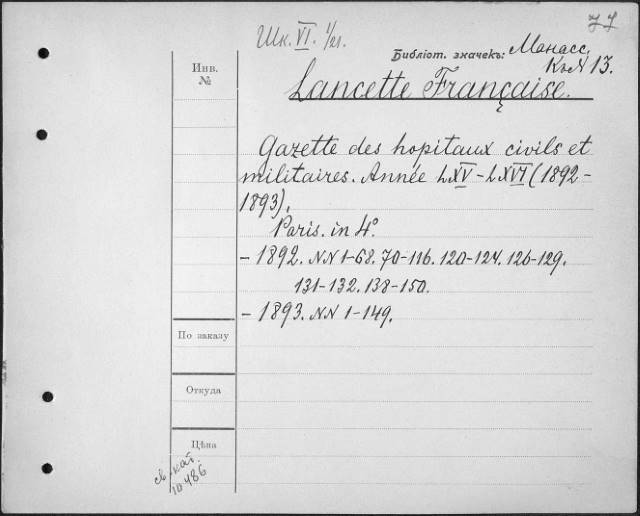 77
Шк. VI. 1/21.
Библіот. значекъ: Манасс.
К. N 13.
Инв.
№
Lancette Française.
Gazette des hôpitaux civils et
militaires. Année LXV-LXVI (1892-
1893).
Paris. in 4°
- 1892. NN 1-68. 70-116. 120-124. 126-129.
131-132. 138-150.
- 1893. NN 1-149.
По заказу
Откуда
Цѣна
св. кат.
10486